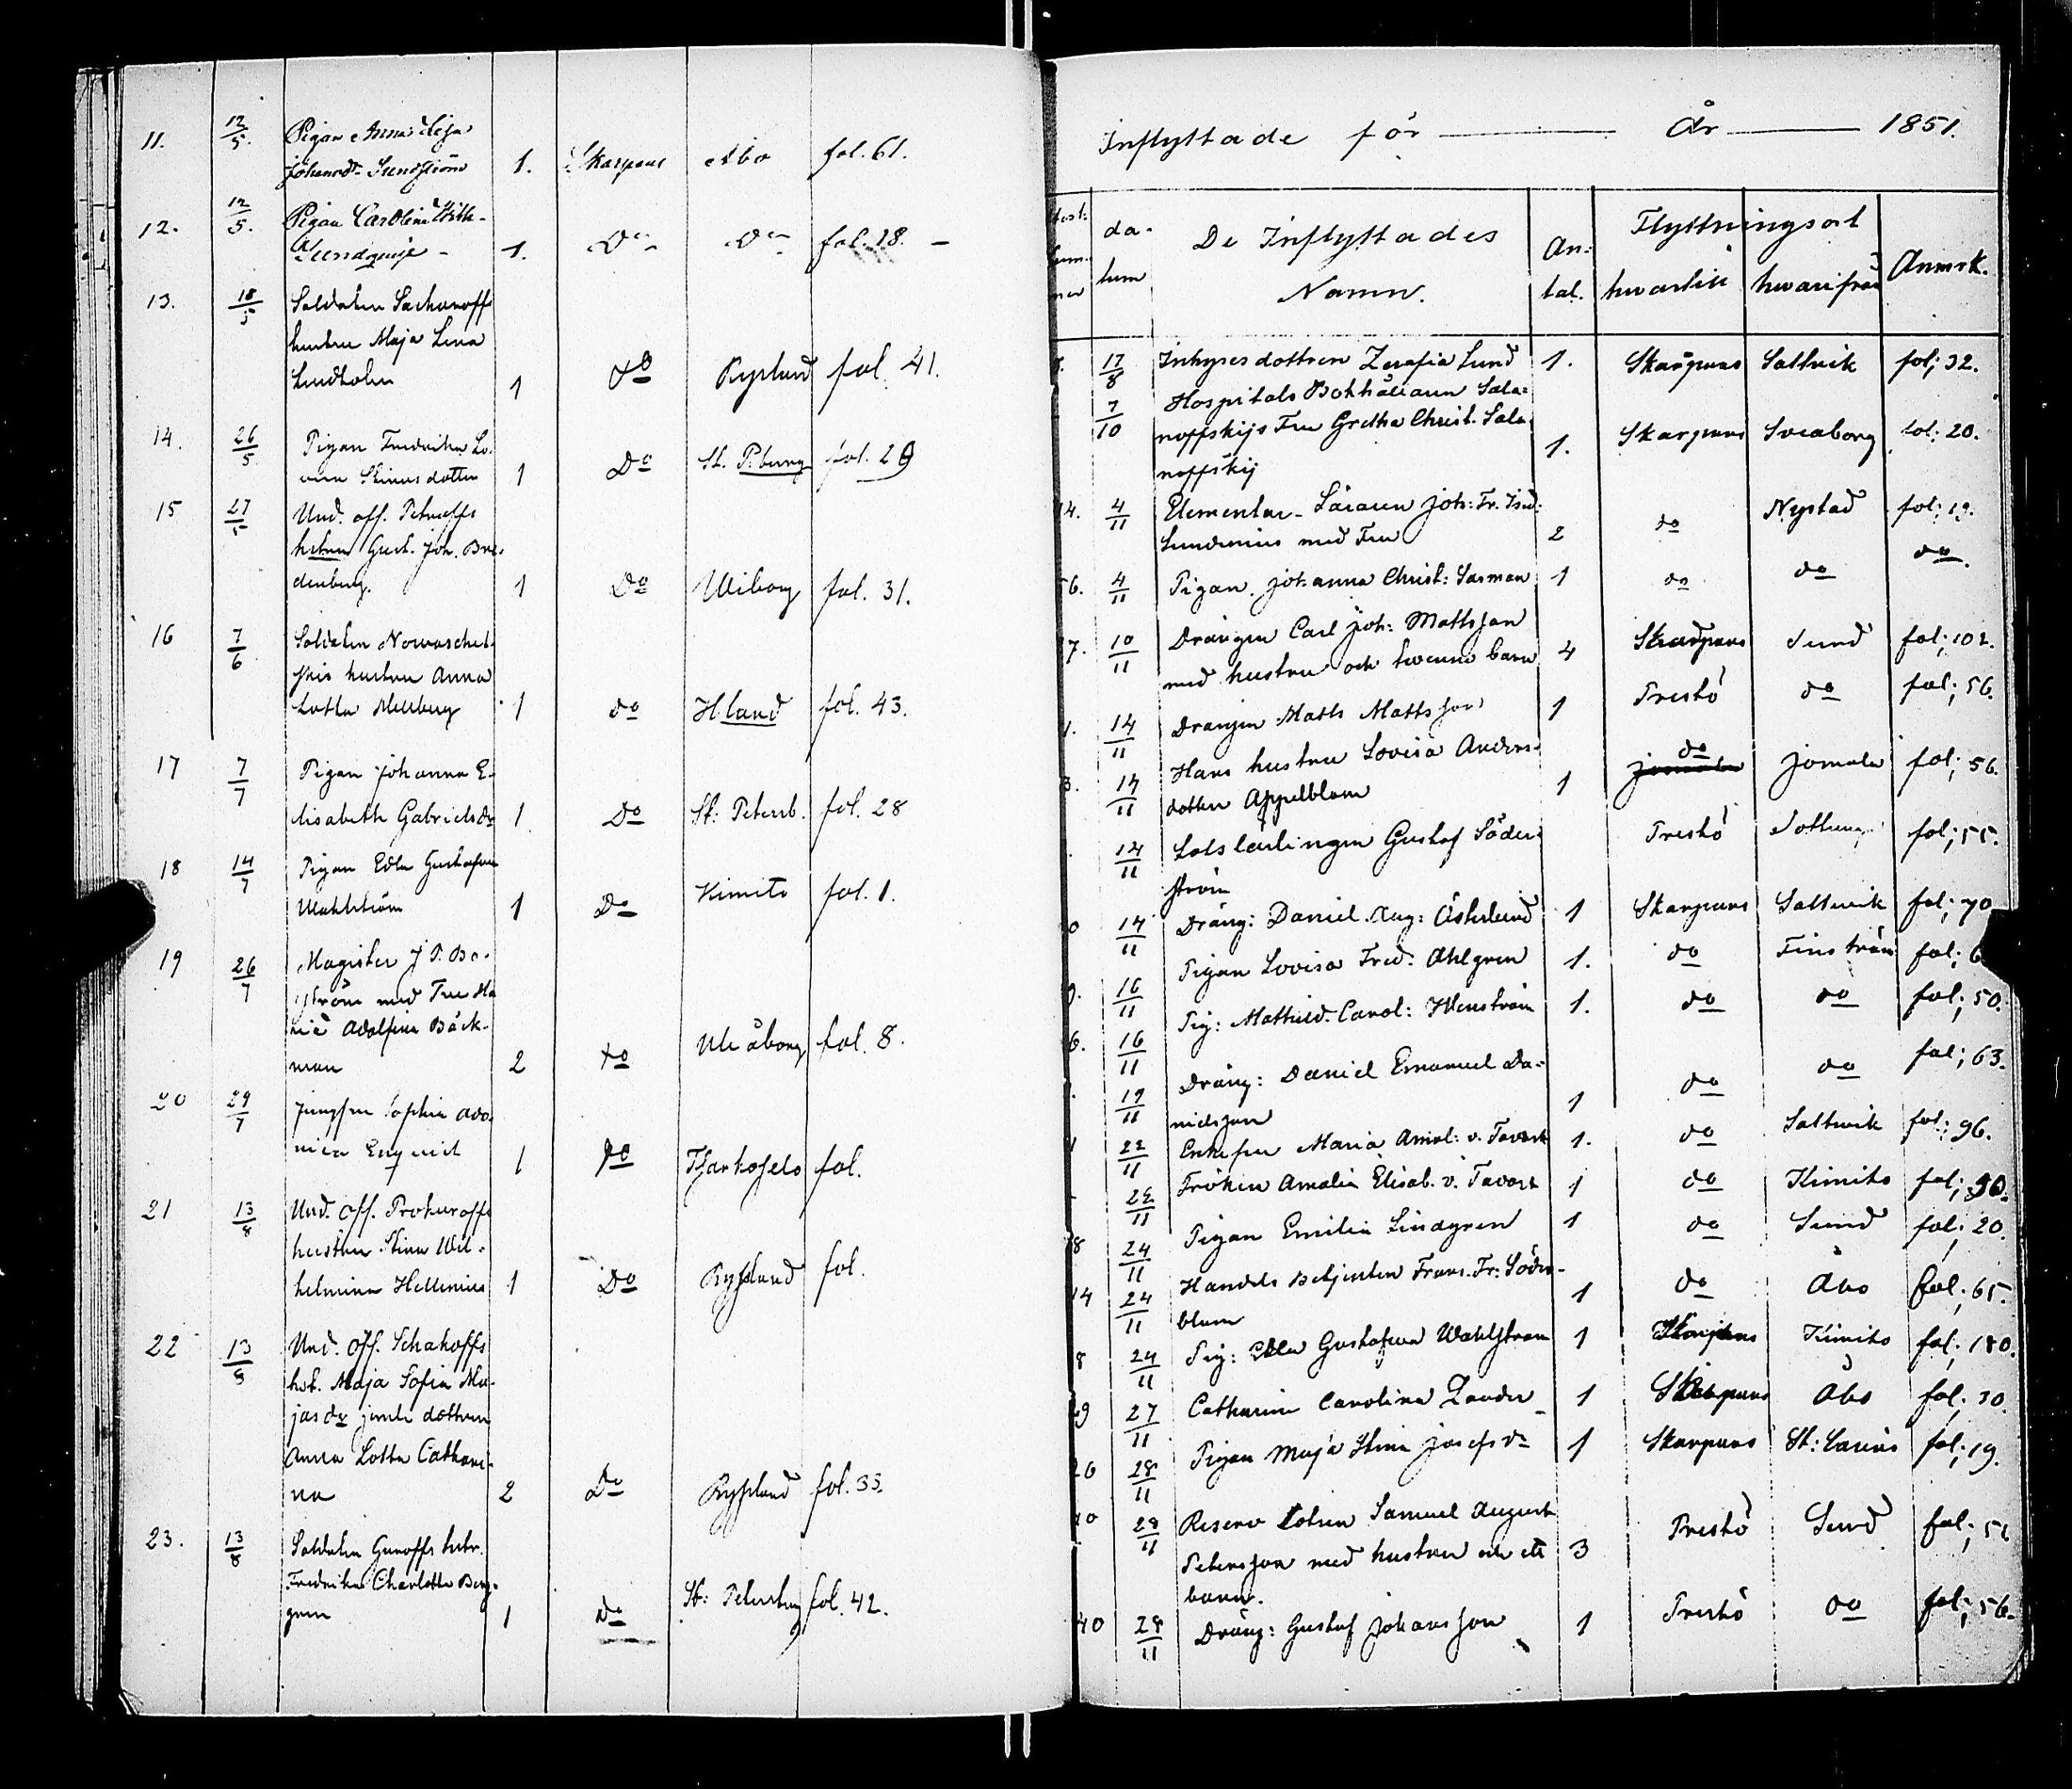 11. 12/5. Pigan Anna Lisa
Johansdr Sundström 1. Skarpans Åbo fol. 61.
12. 12/5. Pigan Carolina Wilh-
Sundqvist - 1. Do Do fol. 18. -
13. 18/5 Soldaten Sacharoffs
hustru Maja Lena
Lindholm 1 do Ryssland fol. 41.
14. 26/5 Pigan Fredrika Lo-
visa Stinusdotter 1 Do St. P.burg fol. 29
15 27/5 Und. off. Petroffs
hustru Gust. Joh. Bre-
denberg. 1 Do Wiborg fol. 31.
16 7/6 Soldaten Nowaschel-
skis hustru Anna
Lotta Mellberg 1 do H.land fol. 43.
17 7/7 Pigan Johanna E-
lisabeth Gabrielsdr 1. Do St: Petersb. fol. 28
18 14/7 Pigan Edla Gustafva
Wahlström 1 Do Kimito fol. 1.
19 26/7 Magister J. P. Bo-
ström med Fru Ma
ria Adolfina Bäck-
man 2 do Uleåborg fol. 8.
20 29/7 Jungfru Sophia Avo-
nica Enqvist 1 do Tsarkoselo fol.
21 13/8 Und. Off. Prokuroffs
hustru Stina Wil-
helmina Hellenius 1 Do Ryssland fol.
22 13/8 Und. Off. Schakoffs
hst. Maja Sofia Ma-
jasdr jemte dottren
Anna Lotta Cathari-
na 2 Do Ryssland fol. 33.
23. 13/8 Soldaten Gunoffs hstr.
Fredrika Charlotta Berg-
gren 1 Do St: Petersburg fol. 42.
Inflyttade för År 1851.
da-
tum De Inflyttades
Namn. An-
tal. Flyttningsort
hvartill hvarifrån Anmrk.
17/8 Inhyses dottren Zerafia Lund 1. Skarpans Saltvik fol; 32.
7/10 Hospitals Bokhållaren Sala-
noffskijs Fru Gretha Christ. Sala-
noffskij 1. Skarpans Sveaborg fol; 20.
14. 4/11 Elementar-Läraren Joh: Fr. Isid:
Sundenius med Fru 2 do Nystad fol; 19.
56. 4/11 Pigan Johanna Christ: Sarman 1 do do do.
7. 10/11 Drängen Carl Joh: Mattsson
med hustru och twenne barn 4 Skarpans Sund fol; 102.
1. 14/11 Drängen Matts Mattsson 1 Prestö do fol; 56.
3. 14/11 Hans hustru Lovisa Anders-
dotter Appelblom 1 Jomala do Jomala fol; 56.
14/11 Lotslärlingen Gustaf Söder-
ström Prestö Sottunga fol; 55.
0 14/11 Dräng: Daniel Aug: Österlund 1 Skarpans Saltvik fol; 70
9. 16/11 Pigan Lovisa Fred: Ahlgren 1. do Finström fol; 6
6. 16/11 Pig: Mathild. Carol: Wenström 1. do do fol; 50.
19/11 Dräng: Daniel Emanuel Da-
nielsson 1 do do fol; 63.
1 22/11 Enkefru Maria Amal: v. Tavast 1. do Saltvik fol; 96.
22/11 Fröken Amalia Elisab. v. Tavast 1 do Kimito fol; 90.
8 24/11 Pigan Emilia Lindgren 1 do Sund fol; 20.
14 24/11 Handels Betjenten Frans. Fr: Söder-
blom 1 do Åbo fol; 65.
8 24/11 Pig: Edla Gustafva Wahlström 1 Skarpans Kimito fol; 180.
29 27/11 Catharina Carolina Zander 1 Skarpans Åbo fol; 30.
26 28/11 Pigan Maja Stina Josefsdr 1 Skarpans St: Karins fol; 19.
40 28/11 Reserv Lotsen Samuel August
Petersson med hustru och ett
barn. 3 Prestö Sund fol; 51
40 28/11 Dräng: Gustaf Johansson 1 Prestö do fol; 56.